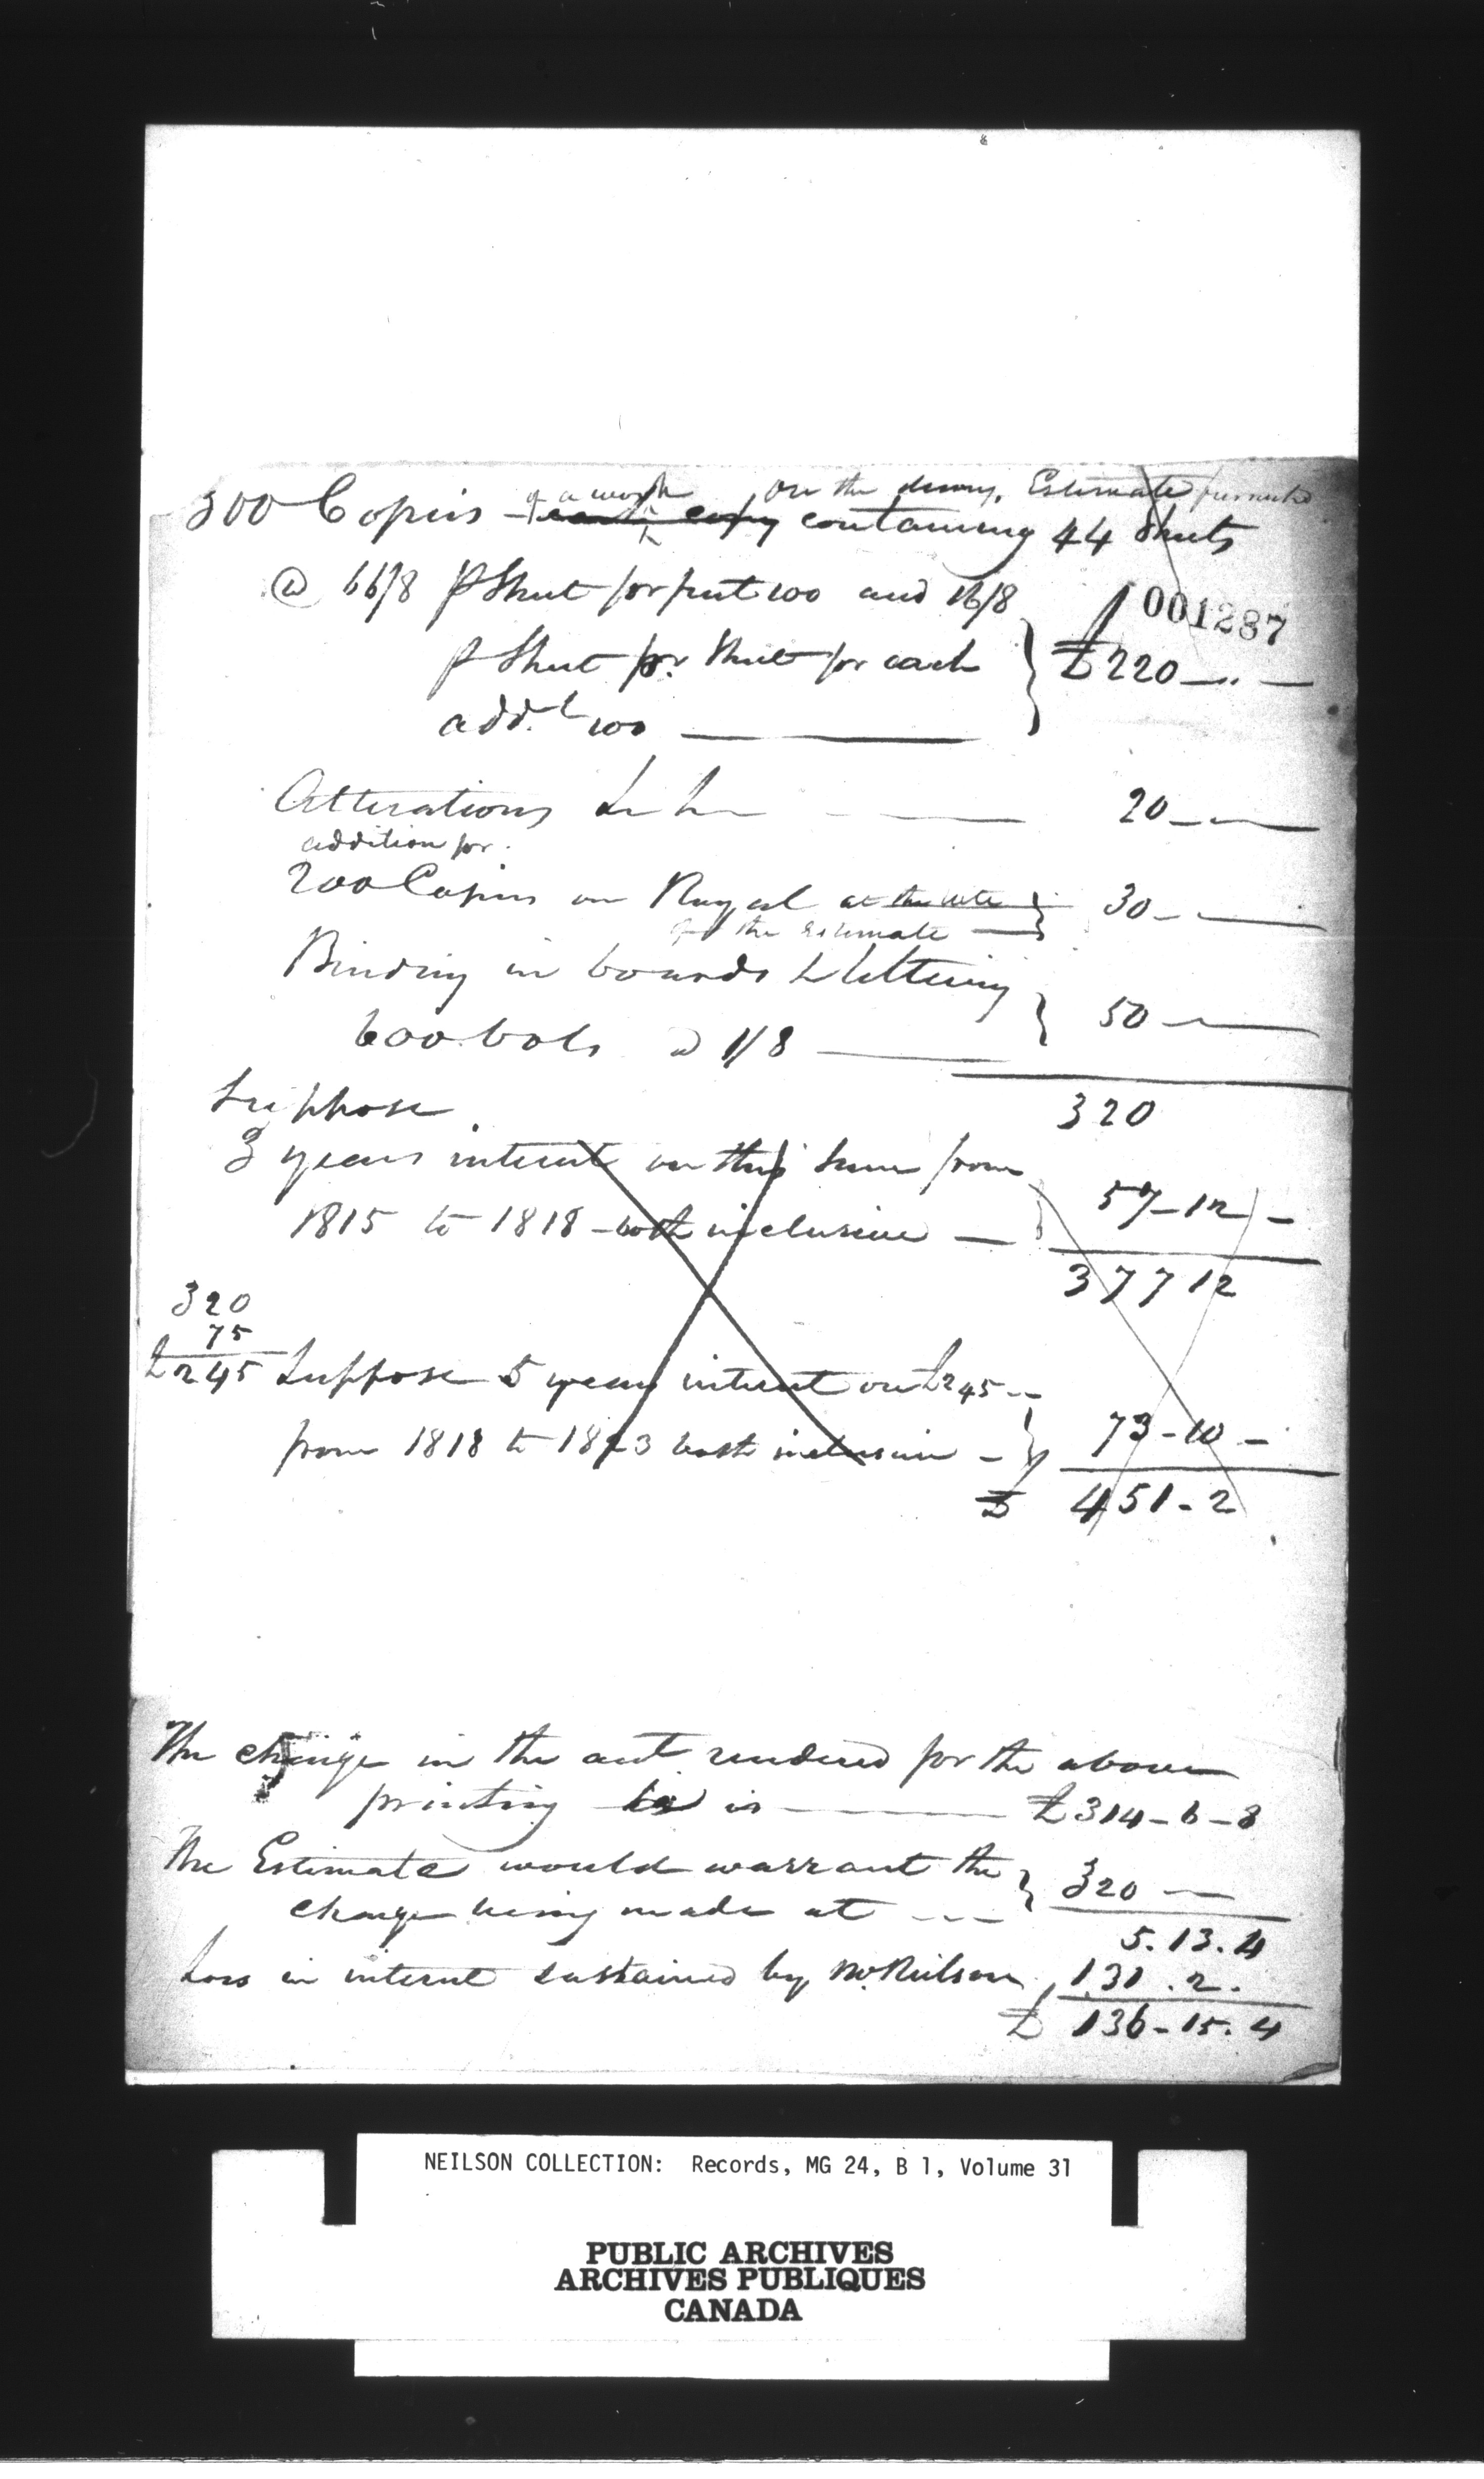 of a work on the demy, Estimate furnished
300 Copies each copy containing 44 Sheets
@ 66/8 p Sheet for first 100 and 16/8
001287
p Sheet for each £220 -..-
add.l 100
Alterations &c &c 20 - -
addition for
200 Copies on Royal at the rate 30 - -
of the Estimate
Binding in boards & lettering
600 vols @ 1/8 50 - -
Suppose 320
3 years interest on this sum from
1815 to 1818 - both inclusive - 57-12 -
377 12
320
75
£245 Suppose 5 years interest on £245 --
from 1818 to 1823 both inclusive - 73-10 -
£ 451-2
The charge in the act rendered for the above
printing is £314-6-8
The Estimate would warrant the
charge being made at --- 320 -
5.13.4
Loss in interest sustained by Mr. Neilson 131.2.
£ 136-15.4
NEILSON COLLECTION: Records, MG 24, B 1, Volume 31
PUBLIC ARCHIVES
ARCHIVES PUBLIQUES
CANADA